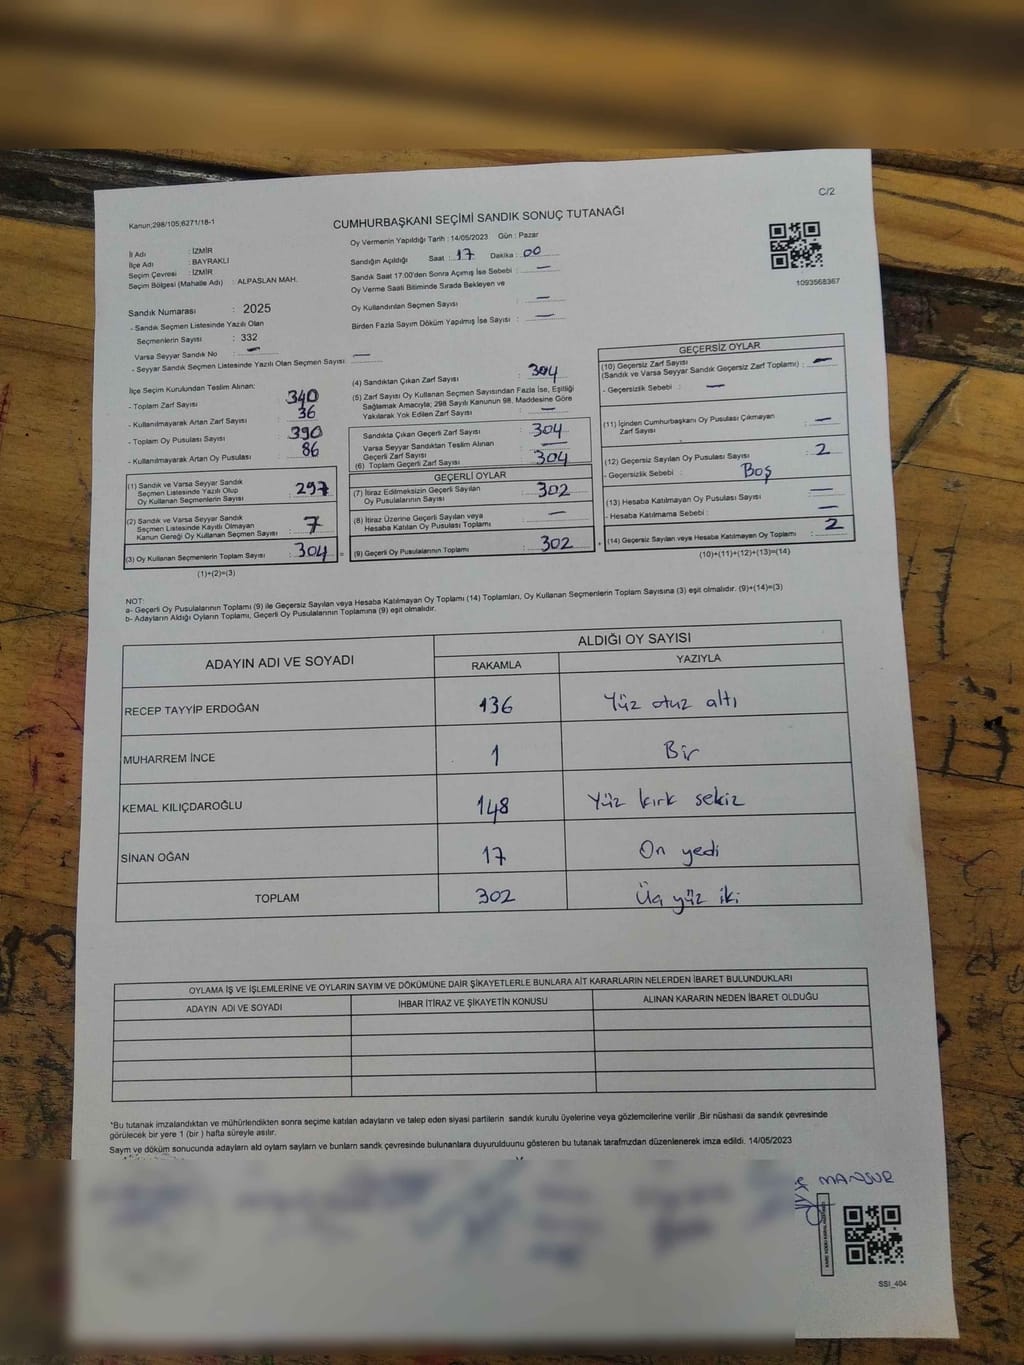 C/2
Kanun;298/105;6271/18-1
CUMHURBAŞKANI SEÇİMİ SANDIK SONUÇ TUTANAĞI
İl Adı : İZMİR
İlçe Adı : BAYRAKLI
Seçim Çevresi : İZMİR
Seçim Bölgesi (Mahalle Adı) : ALPASLAN MAH.
Oy Vermenin Yapıldığı Tarih : 14/05/2023 Gün : Pazar
Sandığın Açıldığı Saat : 17 Dakika : 00
Sandık Saat 17:00'den Sonra Açımış İse Sebebi : —
Oy Verme Saati Bitiminde Sırada Bekleyen ve
Oy Kullandırılan Seçmen Sayısı : —
Birden Fazla Sayım Döküm Yapılmış İse Sayısı : —
1093568367
Sandık Numarası : 2025
- Sandık Seçmen Listesinde Yazılı Olan
Seçmenlerin Sayısı : 332
Varsa Seyyar Sandık No : —
- Seyyar Sandık Seçmen Listesinde Yazılı Olan Seçmen Sayısı: —
İlçe Seçim Kurulundan Teslim Alınan:
- Toplam Zarf Sayısı : 340
- Kullanılmayarak Artan Zarf Sayısı : 36
- Toplam Oy Pusulası Sayısı : 390
- Kullanılmayarak Artan Oy Pusulası : 86
(1) Sandık ve Varsa Seyyar Sandık
Seçmen Listesinde Yazılı Olup
Oy Kullanan Seçmenlerin Sayısı : 297
(2) Sandık ve Varsa Seyyar Sandık
Seçmen Listesinde Kayıtlı Olmayan
Kanun Gereği Oy Kullanan Seçmen Sayısı : 7
(3) Oy Kullanan Seçmenlerin Toplam Sayısı : 304 =
(1)+(2)=(3)
(4) Sandıktan Çıkan Zarf Sayısı : 304
(5) Zarf Sayısı Oy Kullanan Seçmen Sayısından Fazla İse, Eşitliği
Sağlamak Amacıyla; 298 Sayılı Kanunun 98. Maddesine Göre
Yakılarak Yok Edilen Zarf Sayısı : —
Sandıkta Çıkan Geçerli Zarf Sayısı : 304
Varsa Seyyar Sandıktan Teslim Alınan
Geçerli Zarf Sayısı : —
(6) Toplam Geçerli Zarf Sayısı : 304
GEÇERLİ OYLAR
(7) İtiraz Edilmeksizin Geçerli Sayılan
Oy Pusulalarının Sayısı : 302
(8) İtiraz Üzerine Geçerli Sayılan veya
Hesaba Katılan Oy Pusulası Toplamı : —
(9) Geçerli Oy Pusulalarının Toplamı : 302 +
GEÇERSİZ OYLAR
(10) Geçersiz Zarf Sayısı
(Sandık ve Varsa Seyyar Sandık Geçersiz Zarf Toplamı) : —
- Geçersizlik Sebebi : —
(11) İçinden Cumhurbaşkanı Oy Pusulası Çıkmayan
Zarf Sayısı : —
(12) Geçersiz Sayılan Oy Pusulası Sayısı : 2
- Geçersizlik Sebebi : Boş
(13) Hesaba Katılmayan Oy Pusulası Sayısı : —
- Hesaba Katılmama Sebebi : —
(14) Geçersiz Sayılan veya Hesaba Katılmayan Oy Toplamı : 2
(10)+(11)+(12)+(13)=(14)
NOT:
a- Geçerli Oy Pusulalarının Toplamı (9) ile Geçersiz Sayılan veya Hesaba Katılmayan Oy Toplamı (14) Toplamları, Oy Kullanan Seçmenlerin Toplam Sayısına (3) eşit olmalıdır. (9)+(14)=(3)
b- Adayların Aldığı Oyların Toplamı, Geçerli Oy Pusulalarının Toplamına (9) eşit olmalıdır.
ADAYIN ADI VE SOYADI ALDIĞI OY SAYISI
RAKAMLA YAZIYLA
RECEP TAYYİP ERDOĞAN 136 Yüz otuz altı
MUHARREM İNCE 1 Bir
KEMAL KILIÇDAROĞLU 148 Yüz kırk sekiz
SİNAN OĞAN 17 On yedi
TOPLAM 302 Üç yüz iki
OYLAMA İŞ VE İŞLEMLERİNE VE OYLARIN SAYIM VE DÖKÜMÜNE DAİR ŞİKAYETLERLE BUNLARA AİT KARARLARIN NELERDEN İBARET BULUNDUKLARI
ADAYIN ADI VE SOYADI İHBAR İTİRAZ VE ŞİKAYETİN KONUSU ALINAN KARARIN NEDEN İBARET OLDUĞU
*Bu tutanak imzalandıktan ve mühürlendikten sonra seçime katılan adayların ve talep eden siyasi partilerin sandık kurulu üyelerine veya gözlemcilerine verilir .Bir nüshası da sandık çevresinde
görülecek bir yere 1 (bir ) hafta süreyle asılır.
Sayım ve döküm sonucunda adayların ald oylam saylarn ve bunlarn sandk çevresinde bulunanlara duyurulduunu gösteren bu tutanak tarafmzdan düzenlenerek imza edildi. 14/05/2023
MANSUR
SSI_404